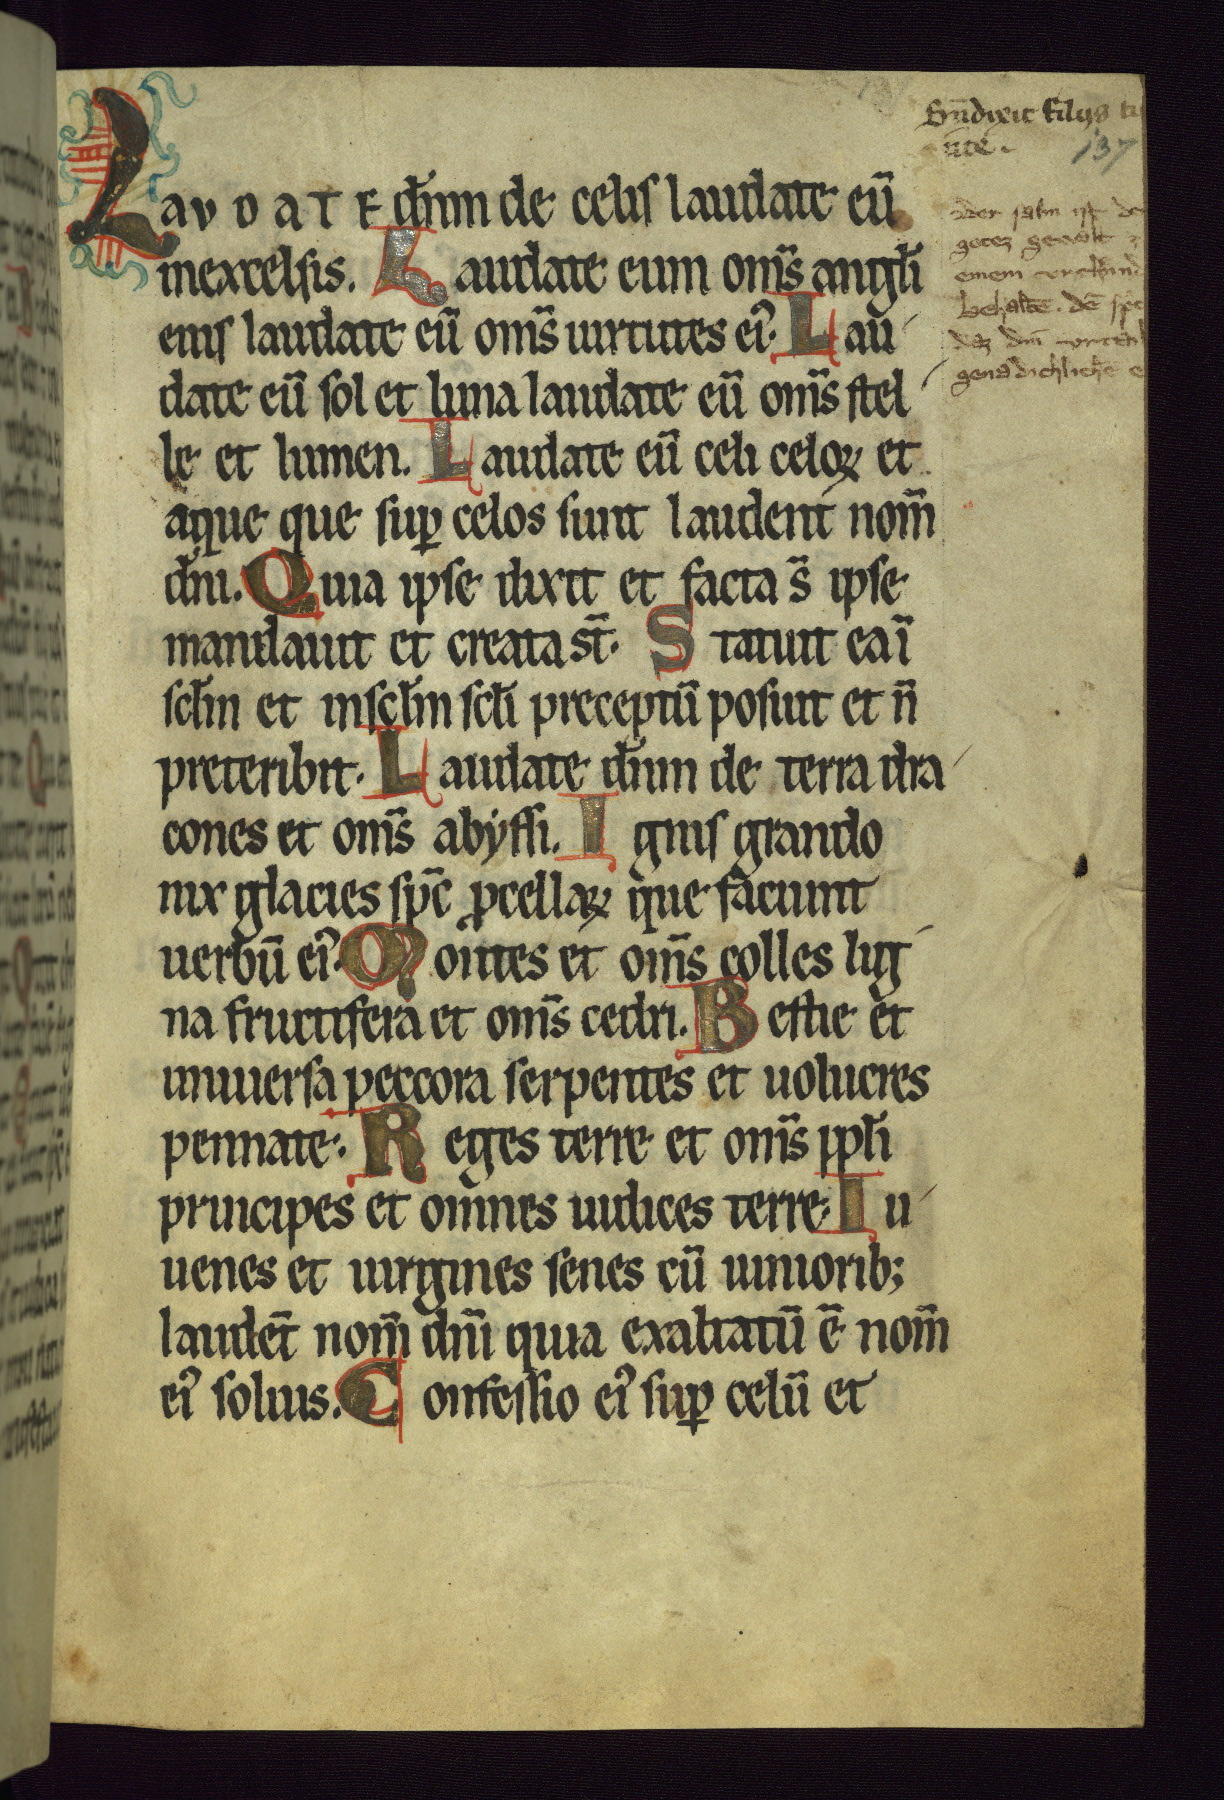 Laudate dn̄m de celis laudate eū
inexcelsis. Laudate eum om̄s angl̄i
eius laudate eū om̄s uirtutes ei᷒. Lau
date eū sol et luna laudate eū om̄s stel
le et lumen. Laudate eū celi celoꝝ et
aque que suꝑ celos sunt laudent nom̄
dn̄i. Quia ipse dixit et facta s̄ ipse
mandauit et creata st̄. Statuit ea ī
scl̄m et inscl̄m scl̄i preceptū posuit et n̄
preteribit. Laudate dn̄m de terra dra
cones et om̄s abyssi. Ignis grando
nix glacies sp̄c ꝓcellaꝝ que faciunt
uerbū ei᷒. Montes et om̄s colles lig
na fructifera et om̄s cedri. Bestie et
uniuersa peccora serpentes et uolucres
pennate. Reges terre et om̄s ppl̄i
principes et omnes iudices terre. Iu
uenes et uirgines senes cū iuniorib;
laudet̄ nom̄ dn̄i quia exaltatū ē nom̄
ei᷒ solius. Confessio ei᷒ suꝑ celū et
137
Der salm ist de
gotes gewalt
einem
behaltē. dē